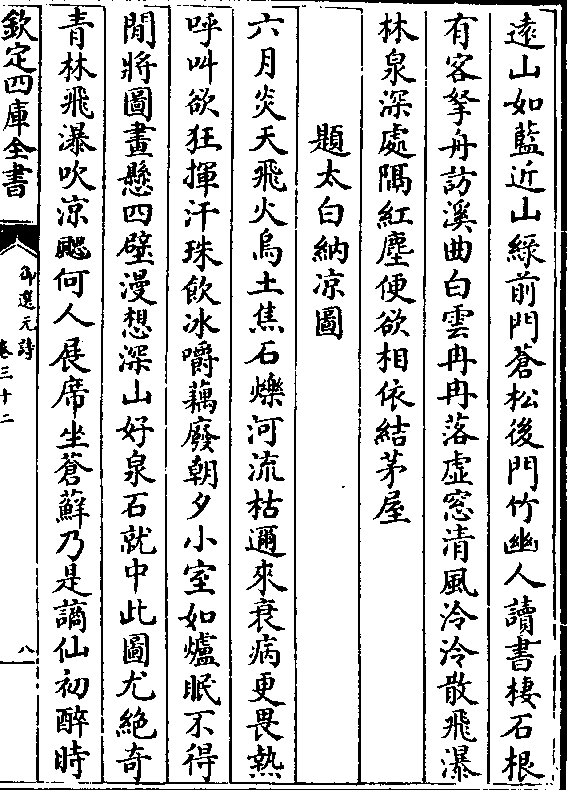 遠山如藍近山綠前門蒼松後門竹幽人讀書棲石根
有客拏舟訪溪曲白雲冉冉落虚窻清風泠泠散飛瀑
林泉深處隔紅塵便欲相依結茅屋
題太白納凉圖
六月炎天飛火烏土焦石爍河流枯邇來衰病更畏熱
呼叫欲狂揮汗珠飲冰嚼藕廢朝夕小室如爐眠不得
閒將圖畫懸四壁漫想深山好泉石就中此圖尤絶奇
青林飛瀑吹凉颸何人展席坐蒼蘚乃是謫仙初醉時
欽定四庫全書
御選元詩
卷三十二
八